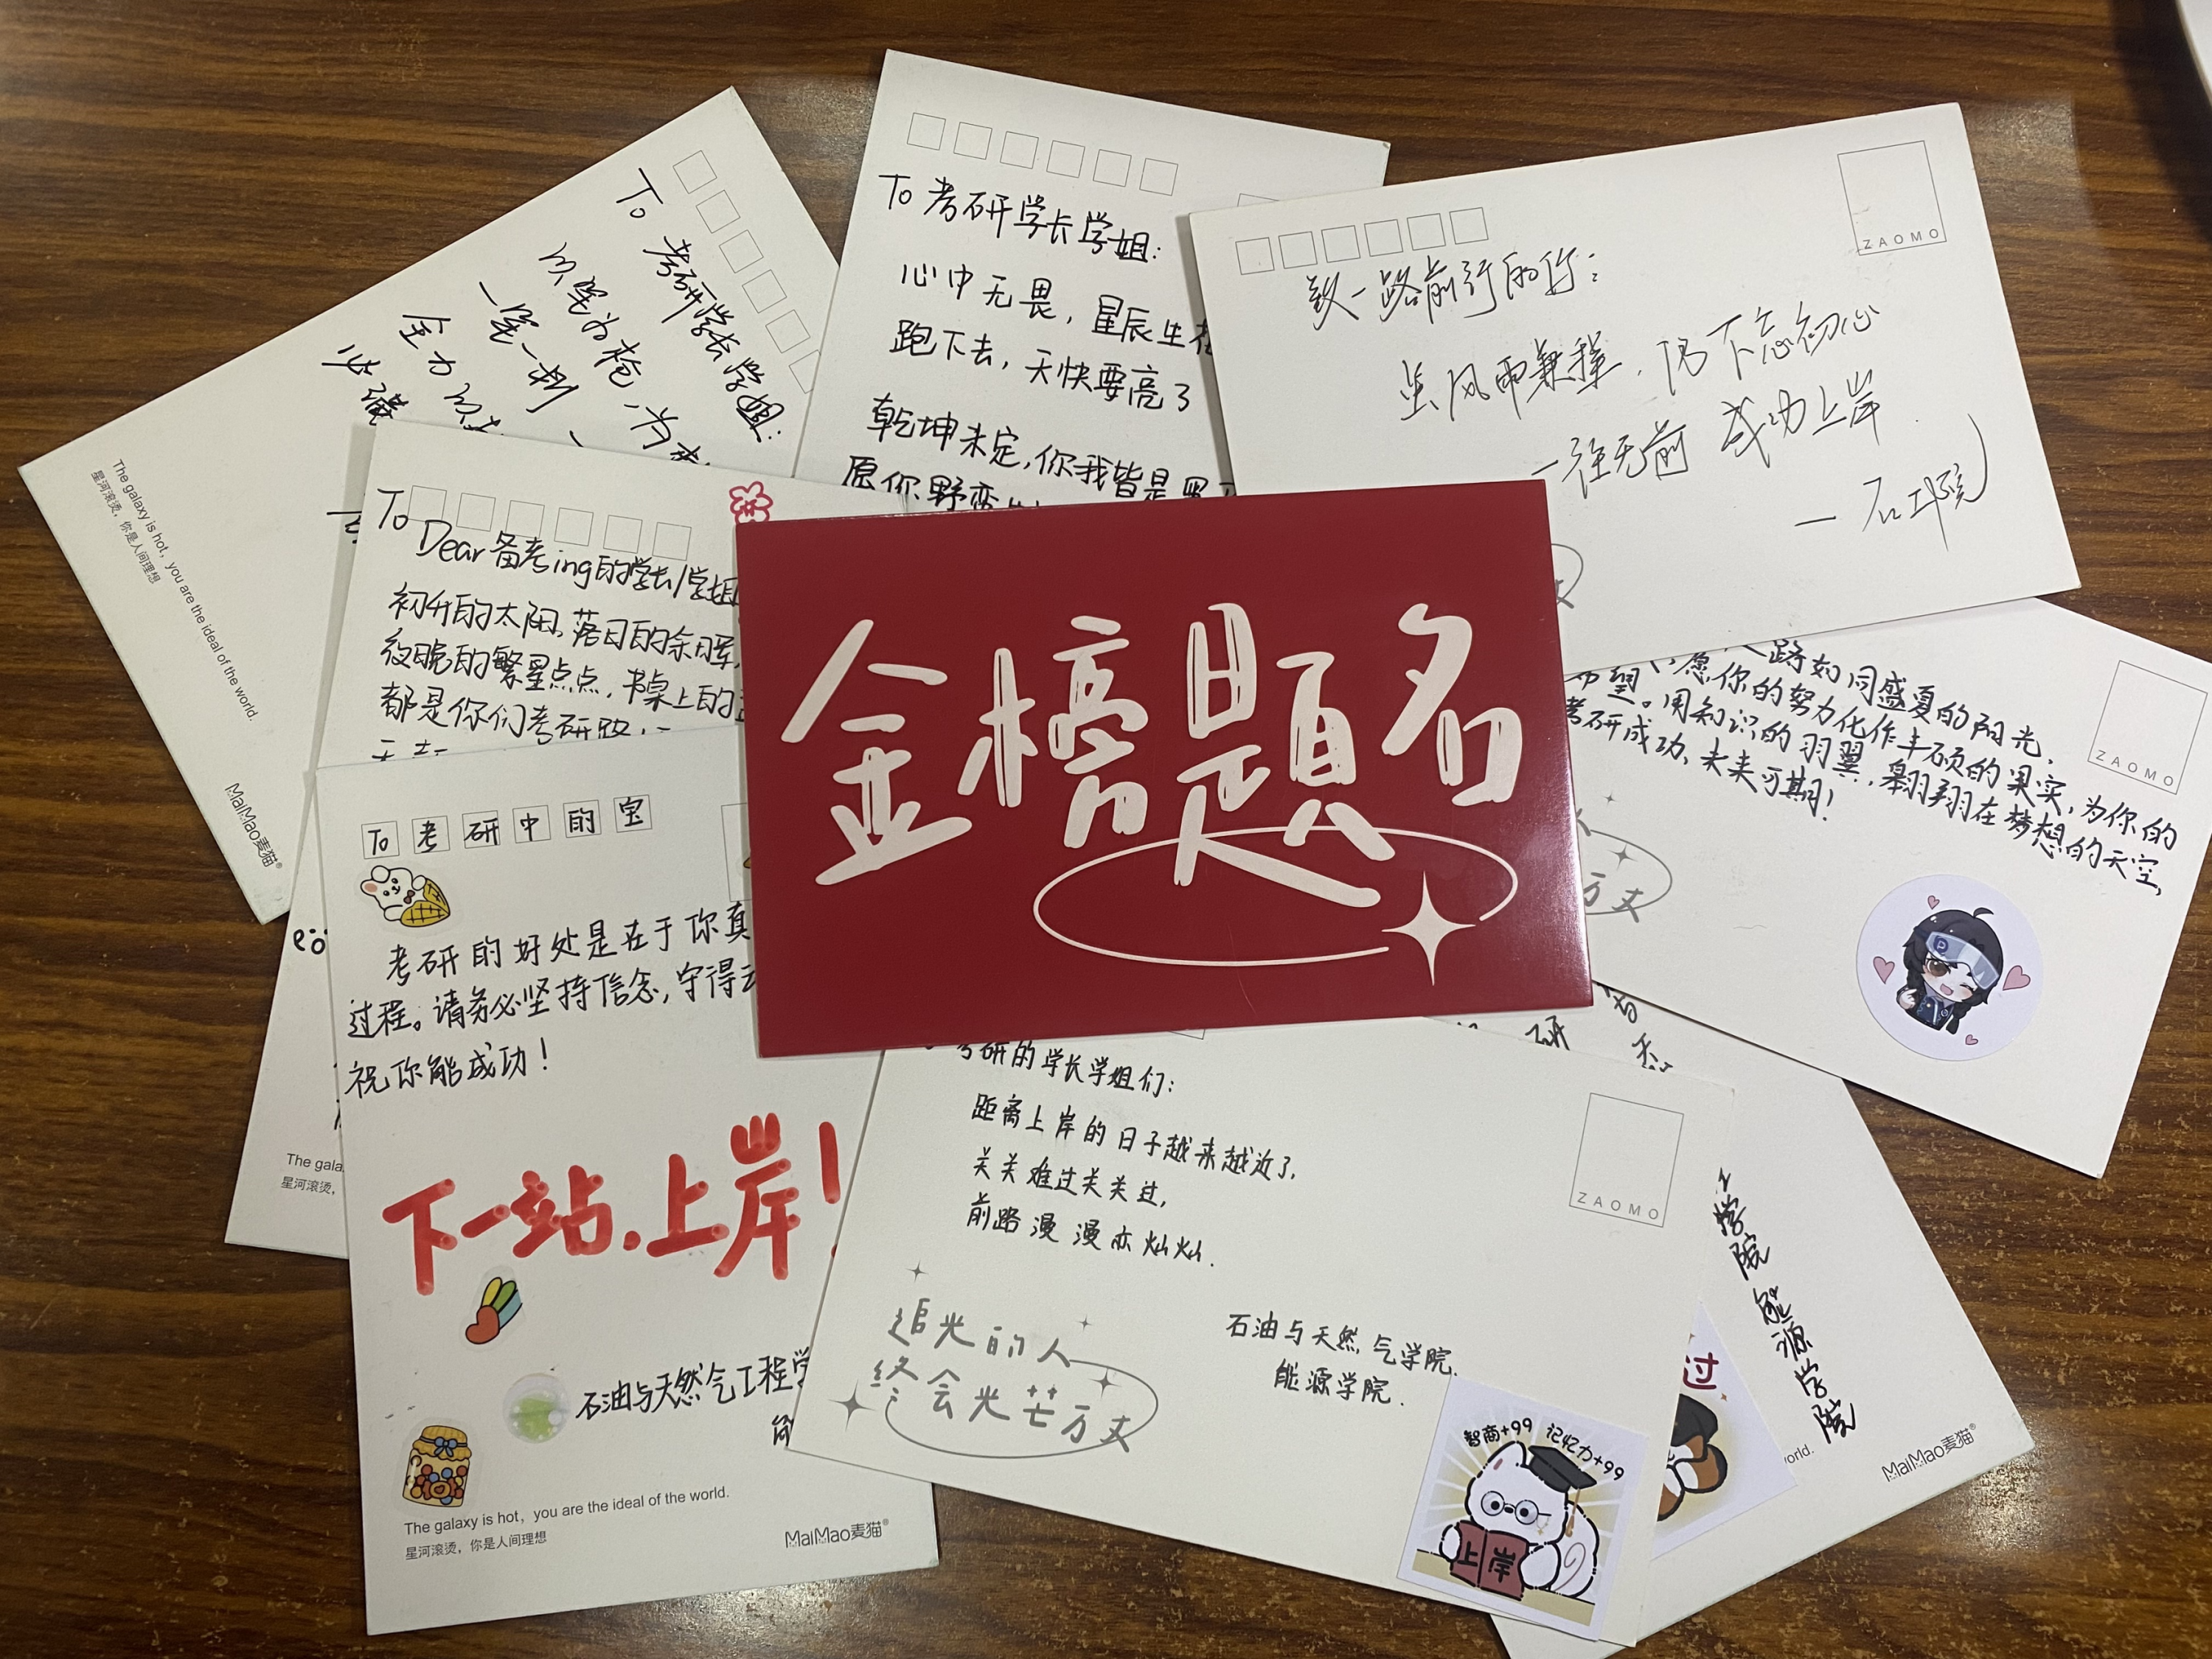 To 考研学长学姐:
以笔为枪,为
一笔一划
全力以
必
The galaxy is hot, you are the ideal of the world.
星河滚烫,你是人间理想
MaiMao麦猫®
To 考研学长学姐:
心中无畏,星辰生
跑下去,天快要亮了
乾坤未定,你我皆是黑
愿你野蛮
ZAOMO
致一路前行的你:
虽风雨兼程,仍不忘初心
一往无前 成功上岸.
— 石工院
To
Dear备考ing的学长/学姐
初升的太阳,落日的余晖,
夜晚的繁星点点,书桌上的
都是你们考研路
金榜题名
路如同盛夏的阳光,
希望,愿你的努力化作丰硕的果实,为你的
。用知识的羽翼,翱翔在梦想的天空,
考研成功,未来可期!
ZAOMO
万丈
To考研中的宝
考研的好处是在于你真
过程。请务必坚持信念,守得云
祝你能成功!
下一站.上岸!
石油与天然气工程学
能
The galaxy is hot, you are the ideal of the world.
星河滚烫,你是人间理想
MaiMao麦猫®
The gala
星河滚烫,
考研的学长学姐们:
距离上岸的日子越来越近了,
关关难过关关过,
前路漫漫亦灿灿.
ZAOMO
追光的人
终会光芒万丈
石油与天然气学院.
能源学院.
智商+99 记忆力+99
上岸
过
研
学院 能源学院
world.
MaiMao麦猫®